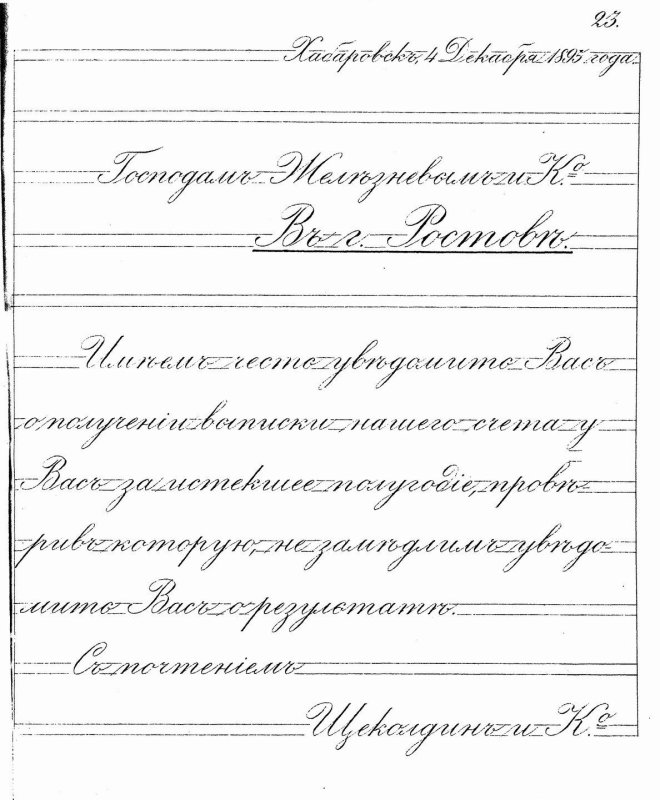 23.
Хабаровскъ, 4 Декабря 1895 года.
Господамъ Желѣзневымъ и К.º
Въ г. Ростовѣ.
Имѣемъ честь увѣдомить Васъ
о полученіи выписки нашего счета у
Васъ за истекшее полугодіе, провѣ-
ривъ которую, не замѣдлимъ увѣдо-
мить Васъ о результатѣ.
Съ почтеніемъ
Щеколдинъ и К.º